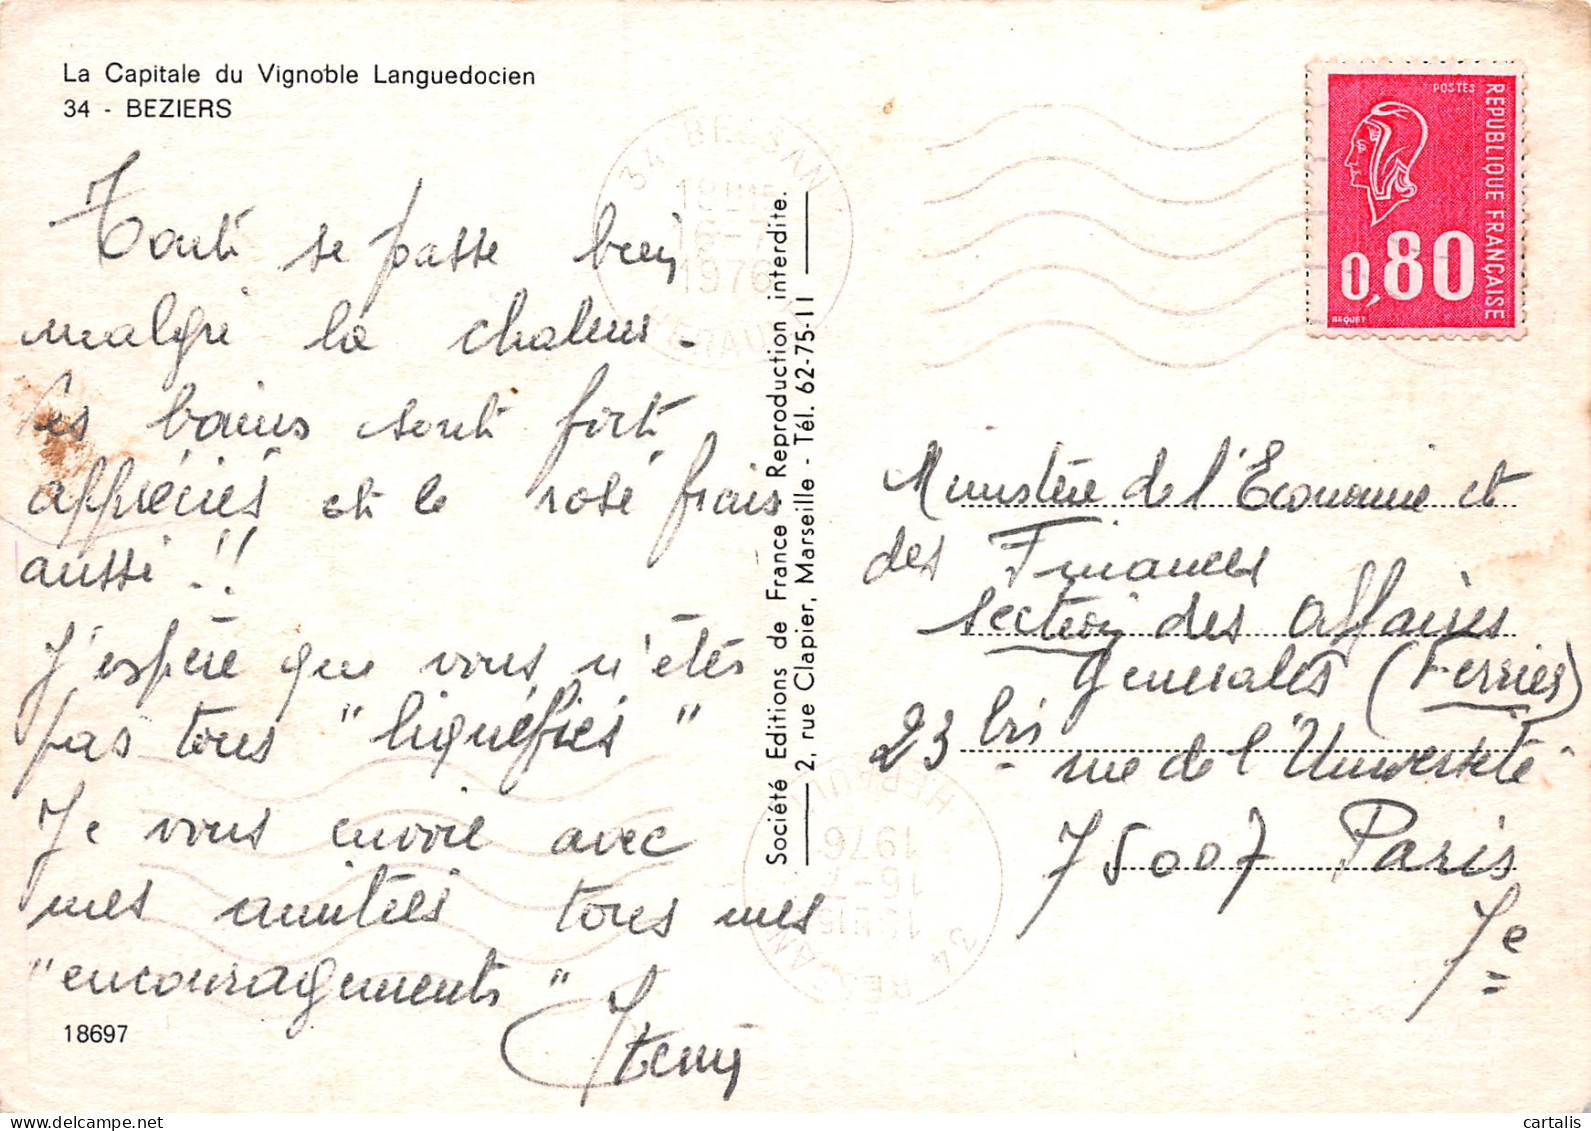 La Capitale du Vignoble Languedocien
34 - BEZIERS
Tout se passe bien
malgré la chaleur.
Les bains sont fort
appréciés et le rosé frais
aussi !!
J'espère que vous n'êtes
pas tous "liquéfiés"
Je vous envoie avec
mes amitiés tous mes
"encouragements"
18697
Société Editions de France Reproduction interdite.
2, rue Clapier, Marseille - Tél. 62-75-11
34 BESSAN
16-7
1976
HERAULT
POSTES
REPUBLIQUE FRANÇAISE
0,80
BEQUET
Ministère de l'Economie et
des Finances
Section des Affaires
Generales (Ferries)
23 bis rue de l'Université
75007 Paris
7e
34 BESSAN
16-7
1976
HERAULT
cartalis
www.delcampe.net